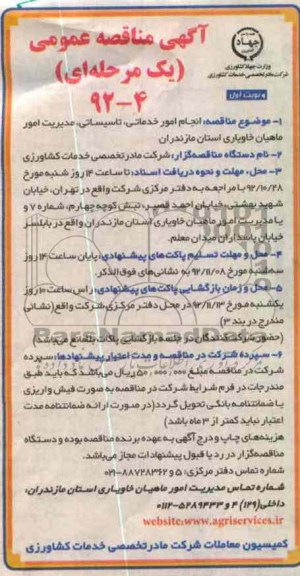 آگهی مناقصه عمومی
(یک مرحله‌ای)
۹۲-۴
جهاد
وزارت جهاد کشاورزی
شرکت مادر تخصصی خدمات کشاورزی
نوبت اول
۱- موضوع مناقصه: انجام امور خدماتی، تاسیساتی، مدیریت امور
ماهیان خاویاری استان مازندران
۲- نام دستگاه مناقصه‌گزار: شرکت مادر تخصصی خدمات کشاورزی
۳- محل، مهلت و نحوه دریافت اسناد: تا ساعت ۱۴ روز شنبه مورخ
۹۲/۱۰/۲۸ با مراجعه به دفتر مرکزی شرکت واقع در تهران، خیابان
شهید بهشتی، خیابان احمد قصیر، نبش کوچه چهارم، شماره ۷ و
یا مدیریت امور ماهیان خاویاری استان مازندران واقع در بابلسر
خیابان پاسداران میدان معلم.
۴- محل و مهلت تسلیم پاکت‌های پیشنهادی: پایان ساعت ۱۴ روز
سه‌شنبه مورخ ۹۲/۱۱/۰۸ به نشانی‌های فوق الذکر
۵- محل و زمان بازگشایی پاکت‌های پیشنهادی: راس ساعت ۱۰ روز
یکشنبه مورخ ۹۲/۱۱/۱۳ در محل دفتر مرکزی شرکت واقع (نشانی
مندرج در بند ۳)
(حضور شرکت کنندگان در جلسه بازگشایی پاکت بلامانع می‌باشد)
۶- سپرده شرکت در مناقصه و مدت اعتبار پیشنهادها: سپرده
شرکت در مناقصه مبلغ ۵۰،۰۰۰،۰۰۰ ریال می‌باشد که باید طبق
مندرجات در فرم شرایط شرکت در مناقصه به صورت فیش واریزی
یا ضمانتنامه بانکی تحویل گردد (در صورت ارائه ضمانتنامه مدت
اعتبار نباید کمتر از ۳ ماه باشد)
هزینه‌های چاپ و درج آگهی به عهده برنده مناقصه بوده و دستگاه
مناقصه‌گزار در رد یا قبول پیشنهادات مجاز می‌باشد.
شماره تماس دفتر مرکزی: ۵ و ۸۸۷۲۸۳۶۲-۰۲۱
شماره تماس مدیریت امور ماهیان خاویاری استان مازندران:
داخلی (۱۲۹) ۴ و ۵۲۸۹۴۳۳-۰۱۱۲
website:www.agriservices.ir
کمیسیون معاملات شرکت مادر تخصصی خدمات کشاورزی